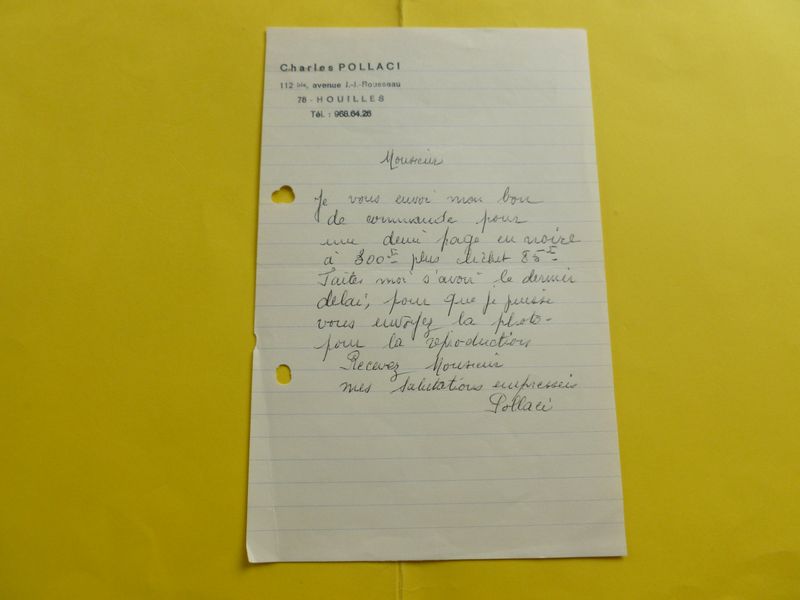 Charles POLLACI
112 bis, avenue J.-J.-Rousseau
78 - HOUILLES
Tél. : 968.64.26
Monsieur
Je vous envoi mon bon
de commande pour
une demi page en noire
à 300F plus cliché 85F
Faites moi s'avoir le dernier
délai, pour que je puisse
vous envoyez la photo-
pour la reproduction
Recevez Monsieur
mes salutations empressés
Pollaci